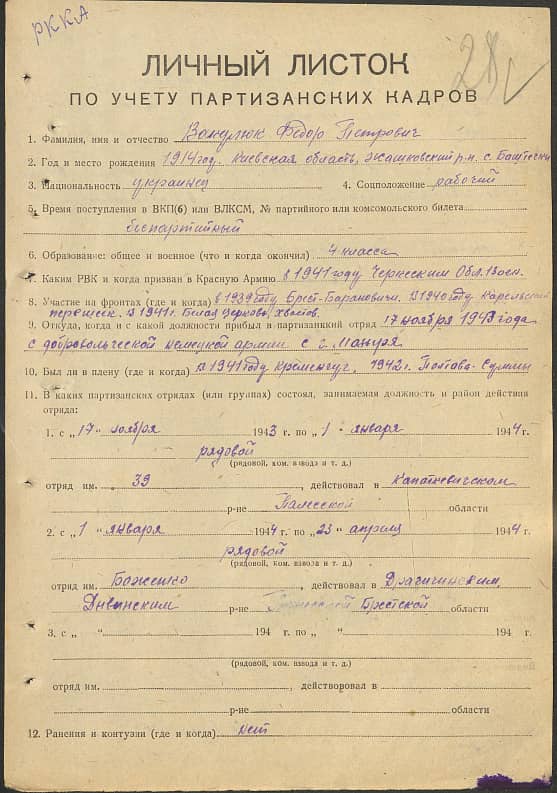 РККА
28
ЛИЧНЫЙ ЛИСТОК
ПО УЧЕТУ ПАРТИЗАНСКИХ КАДРОВ
1. Фамилия, имя и отчество Вакулюк Федор Петрович
2. Год и место рождения 1914 год. Киевская область, Жашковский р-н, с. Баштечки
3. Национальность украинец 4. Соцположение рабочий
5. Время поступления в ВКП(б) или ВЛКСМ, № партийного или комсомольского билета
беспартийный
6. Образование: общее и военное (что и когда окончил) 4 класса
7. Каким РВК и когда призван в Красную Армию в 1941 году Черкесским Обл. Воен.
8. Участие на фронтах (где и когда) в 1939 году Брест-Барановичи. В 1940 году Карельский
перешеек. В 1941 г. Белая Церковь,
9. Откуда, когда и с какой должности прибыл в партизанкий отряд 17 ноября 1943 года
с добровольческой немецкой армии с г.
10. Был ли в плену (где и когда) в 1941 году Кременчуг, 1942 г. Полтава-Суммы
11. В каких партизанских отрядах (или группах) состоял, занимаемая должность и район действия
отряда:
1. с „17" ноября 1943 г. по „1" января 1944 г.
рядовой
(рядовой, ком. взвода и т. д.)
отряд им. 39, действовал в Капаткевичском
р-не Полесской области
2. с „1" января 1944 г. по „23" апреля 1944 г.
рядовой
(рядовой, ком. взвода и т. д.)
отряд им. Боженко, действовал в Драгичинским,
Дивинским р-не Брестской области
3. с „ " 194 г. по „ " 194 г.
(рядовой, ком. взвода и т. д.)
отряд им. , действовал в
р-не области
12. Ранения и контузии (где и когда) нет